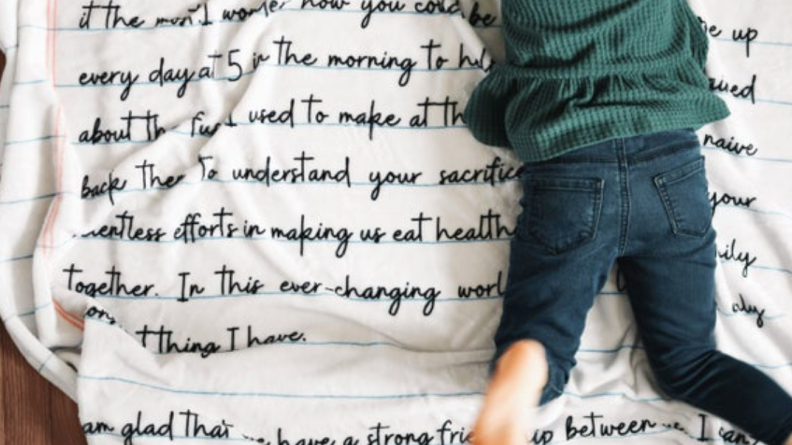 it the most I wonder how you could be
every day at 5 in the morning to e up
about th used to make at th ued
back then to understand your sacrifice naive
efforts in making us eat health your
together. In this ever-changing worl ily
thing I have.
am glad that have a strong frie ip between I can